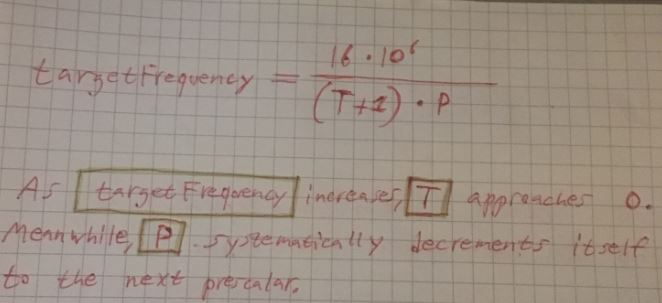 targetFrequency = 16 · 10⁶ / (T+1) · P
As targetFrequency increases, T approaches 0.
Meanwhile, P systematically decrements itself
to the next prescalar.